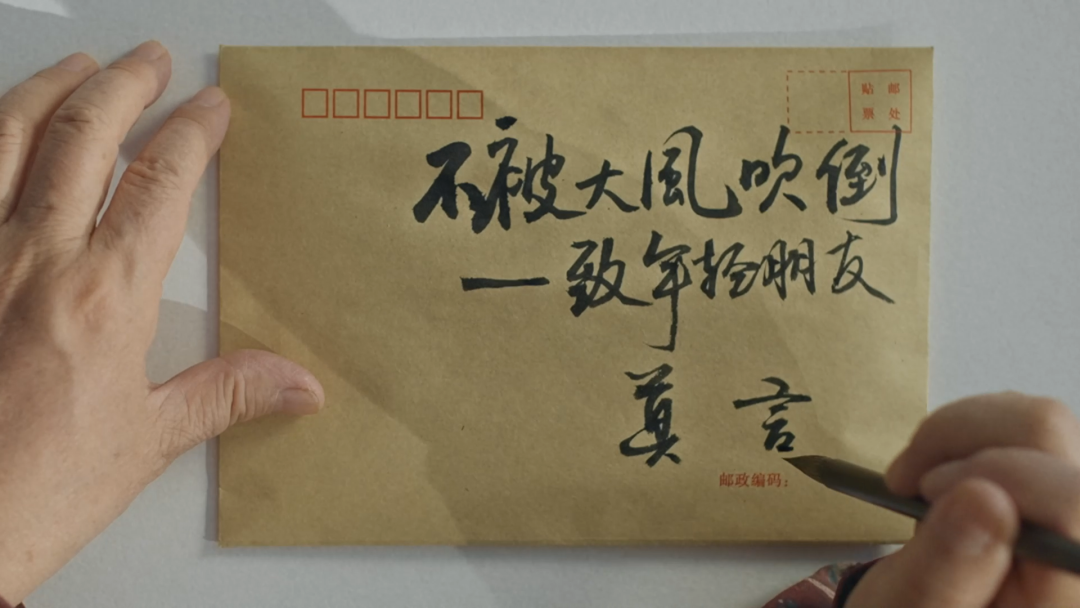 贴 邮
票 处
不被大風吹倒
一致年轻朋友
莫言
邮政编码：